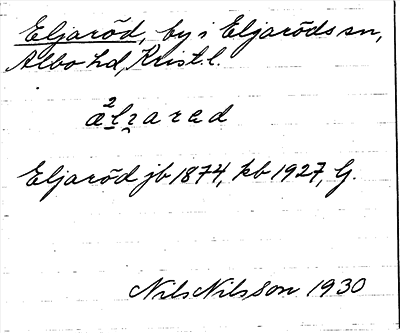 Eljaröd, by i Eljaröds sn,
Albo hd, Krist. l.
Eljaröd jb 1874, kb 1927, G.
Nils Nilsson 1930